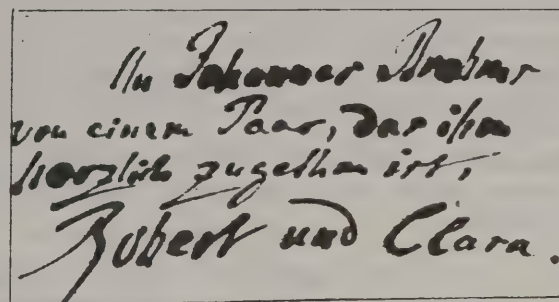 An Johannes Brahms
von einem Paar, das ihm
herzlich zugethan ist,
Robert und Clara.